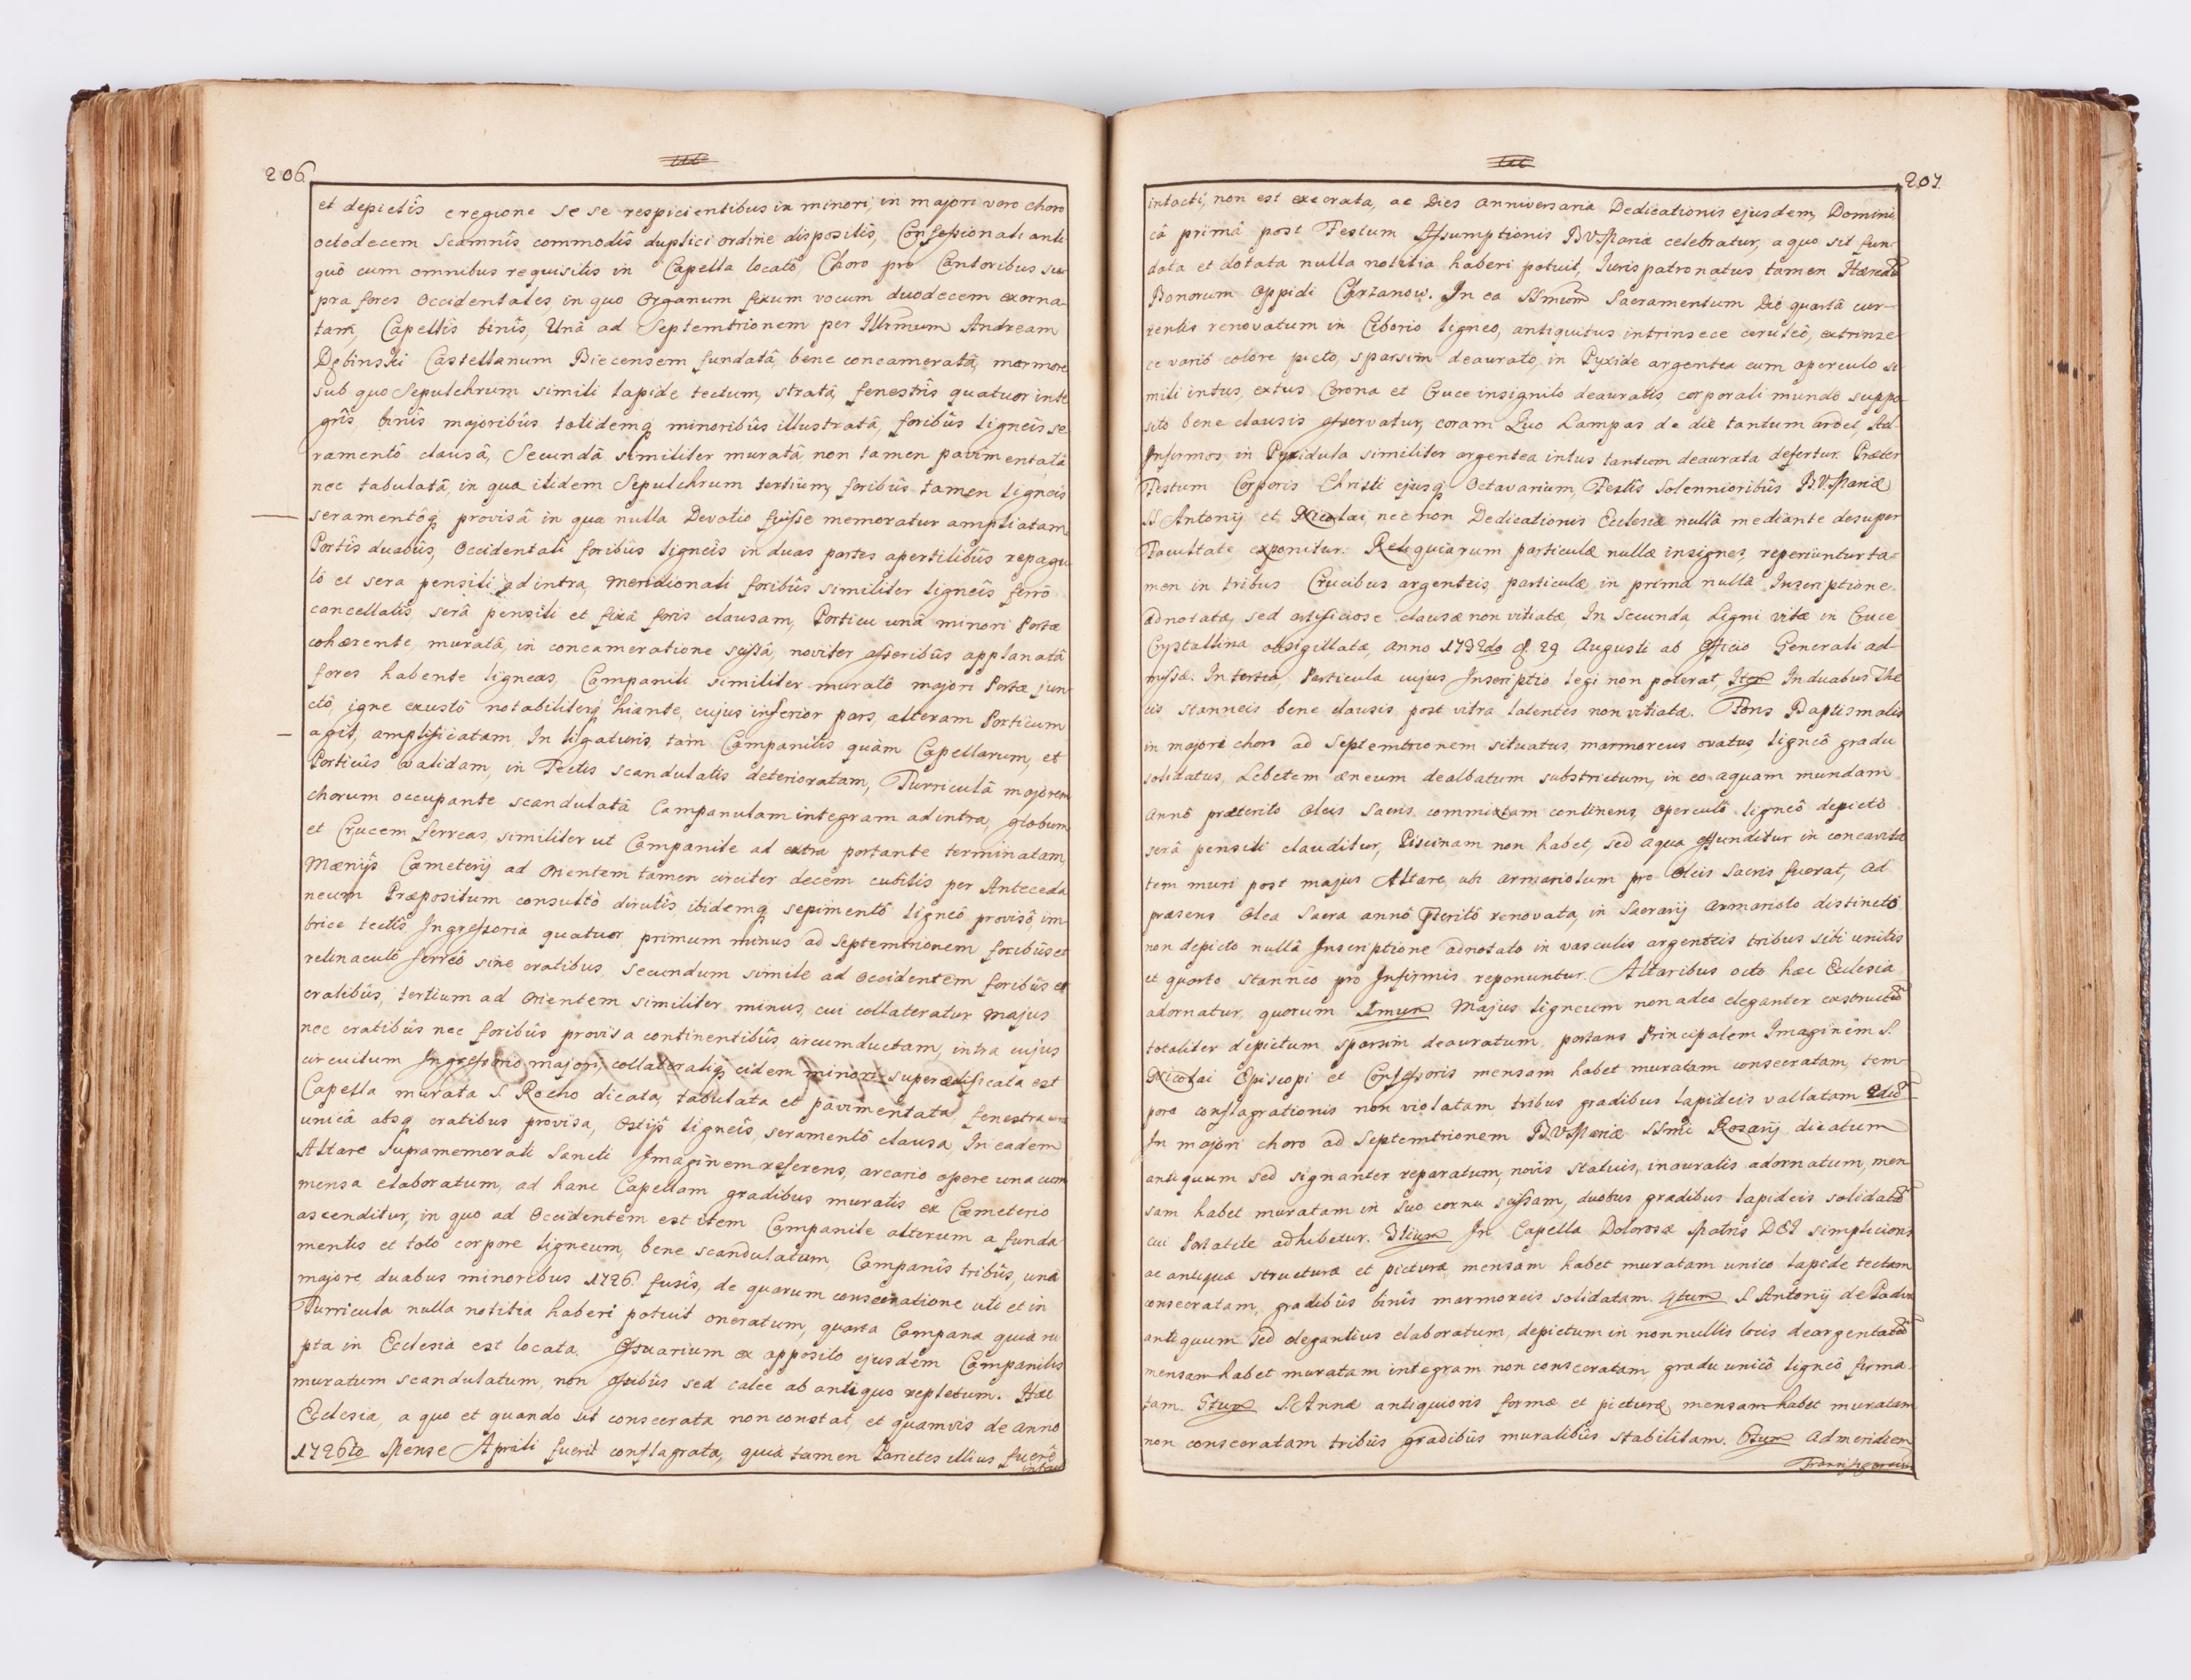 206
et depictîs e regione se se respicientibus in minori, in majori vero choro
octodecem Scamnîs commodîs duplici ordine dispositîs, Confessionali anti-
quô cum omnibus requisitis in Capella locatô, Choro pro Cantoribus su-
pra fores Occidentales, in quo Organum fixum vocum duodecem exorna-
tam, Capellîs binîs, Unâ ad Septemtrionem per Illrmum Andream
Dębinski Castellanum Biecensem fundatâ, bene concameratâ, marmore
sub quo Sepulchrum simili lapide tectum, stratâ, fenestrîs quatuor inte
grîs, binîs majoribûs totidemq minoribûs illustratâ, foribûs ligneîs se
ramentô clausâ, Secundâ similiter muratâ non tamen pavimentatâ
nec tabulatâ, in qua itidem Sepulchrum tertium, foribûs tamen ligneis
seramentôq provisâ in qua nulla Devotio fuisse memoratur ampliatam
Portîs duabûs, Occidentali foribûs ligneîs in duas partes apertilibûs repagu
lô et sera pensili ad intra, meridionali foribûs similiter ligneîs ferrô
cancellatîs, serâ pensili et fixâ foris clausam, Porticu unâ minori Portæ
cohærente, muratâ, in concameratione scissâ, noviter asseribûs applanatâ
fores habente ligneas, Campanili similiter muratô majori Portæ jun
ctô, igne exustô notabiliterq hiante, cujus inferior pars, alteram Porticum
agit, amplificatam. In ligaturis, tàm Campanilîs quàm Capellarum, et
Porticûs validam, in Tectis scandulatis deterioratam, Turriculâ majorem
chorum occupante scandulatâ Campanulam integram ad intra, globum
et Crucem ferreas, similiter ut Campanile ad extra portante terminatam,
Mænijs Cæmeterij ad Orientem tamen circiter decem cubitis per Anteceda
neum Præpositum consultô dirutîs, ibidemq sepimentô ligneô provisô, im-
brice tectîs, Ingressoria quatuor, primum minus ad Septemtrionem foribûs et
retinaculô ferreô sine cratibus, Secundum simile ad Occidentem foribûs et
cratibûs, tertium ad Orientem similiter minus, cui collateratur majus
nec cratibûs nec foribûs provisa continentibûs, circumductam, intra cujus
circuitum Ingressorio majori, collateraliq eidem minori superædificata est
Capella murata S. Rocho dicata, tabulata et pavimentata, fenestra
unicâ absq cratibus provisa, Ostijs ligneîs, seramentô clausa, In eadem
Altare Supramemorati Sancti Imaginem referens, arcario opere una cum
mensa elaboratum, ad hanc Capellam gradibus muratis ex Cæmeterio
ascenditur, in quo ad Occidentem est item Campanile alterum a funda
mentis et toto corpore ligneum, bene scandulatum, Campanîs tribûs, unâ
majore, duabus minoribus 1726 fusîs, de quarum consecratione uti et in
Turricula nulla notitia haberi potuit oneratum, quarta Campana quia ru
pta in Ecclesia est locata. Ossuarium ex opposito ejusdem Campanilis
muratum scandulatum, non ossibûs sed calce ab antiquo repletum. Hæc
Ecclesia, a quo et quando sit consecrata non constat, et quamvis de anno
1726to Mense Aprili fuerit conflagrata, quia tamen Parietes illius fuerê
intacti
207
intacti, non est execrata, ac Dies Anniversaria Dedicationis ejusdem, Domini,
câ primâ post Festum Assumptionis B.V. Mariæ celebratur, a quo sit fun-
data et dotata nulla notitia haberi potuit, Iurispatronatus tamen Hæredum
Bonorum Oppidi Chrzanow. In ea SSmum Sacramentum Die quartâ cur-
rentis renovatum in Ciborio ligneo, antiquitus intrinsece ceruleô, extrinse-
ce variô colore picto, sparsim deaurato, in Pyxide argentea cum operculo si
mili intus, extus Corona et Cruce insignito deauratis, corporali mundo suppo-
sito bene clausis asservatur, coram Quo Lampas de die tantum ardet, Ad
Infirmos, in Pyxidula similiter argentea intus tantum deaurata defertur. Præter
Festum Corporis Christi ejusq Octavarium, Festîs Solennioribûs B.V. Mariæ
SS Antonij et Nicolai, nec non Dedicationis Ecclesiæ nullâ mediante desuper
Facultate exponitur. Reliquiarum particulæ nullæ insignes, reperiuntur ta-
men in tribus Crucibus argenteis, particulæ in prima nullâ Inscriptione
adnotatæ, sed artificiose clausæ non vitiatæ, In Secunda Ligni vitæ in Cruce
Crystallina obsigillatæ, anno 1732do d. 29 Augusti ab Officio Generali ad-
missæ. In tertia, Particula cujus Inscriptio legi non poterat, Item In duabus The
cis stanneis bene clausis post vitra latentes non vitiatæ. Fons Baptismalis
in majori choro ad Septemtrionem situatus, marmoreus ovatus, ligneô gradu
solidatus, Lebetem æneum dealbatum substrictum, in eo aquam mundam
annô præterito Oleis Sacris commixtam continens, operculô ligneô depictô
serâ pensili clauditur, Piscinam non habet, sed aqua effunditur in concavita
tem muri post majus Altare, ubi armariolum pro Oleis Sacris fuerat, Ad
præsens Olea Sacra annô pterito renovata, in Sacrarij armariolo distinctô
non depicto nullâ Inscriptione adnotato in vasculis argenteis tribus sibi unitis
et quarto stanneo pro Infirmis reponuntur. Altaribus octo hæc Ecclesia
adornatur, quorum 1mum Majus ligneum non adeo eleganter exstructum
totaliter depictum, sparsim deauratum, portans Principalem Imaginem S.
Nicolai Episcopi et Confessoris mensam habet muratam consecratam, tem-
pore conflagrationis non violatam, tribus gradibus lapideis vallatam. 2dum
In majori choro ad Septemtrionem B.V. Mariæ SSmi Rosarij dicatum
antiquum sed signanter reparatum, novis statuis, inauratis adornatum, men
sam habet muratam in suo cornu scissam, duobus gradibus lapideis solidatam
cui Portatile adhibetur. 3tium In Capella Dolorosæ Matris DEI simplicioris
ac antiquæ structuræ et picturæ, mensam habet muratam unico lapide tectam
consecratam, gradibûs binîs marmoreis solidatam. 4tum S. Antonij de Padua
antiquum sed elegantius elaboratum, depictum in nonnullis locis deargentatum
mensam habet muratam integram non consecratam, gradu unicô ligneô firma
tam. 5tum S. Annæ antiquioris formæ et picturæ, mensam habet muratam
non consecratam tribûs gradibûs muralibûs stabilitam. 6tum Ad meridiem